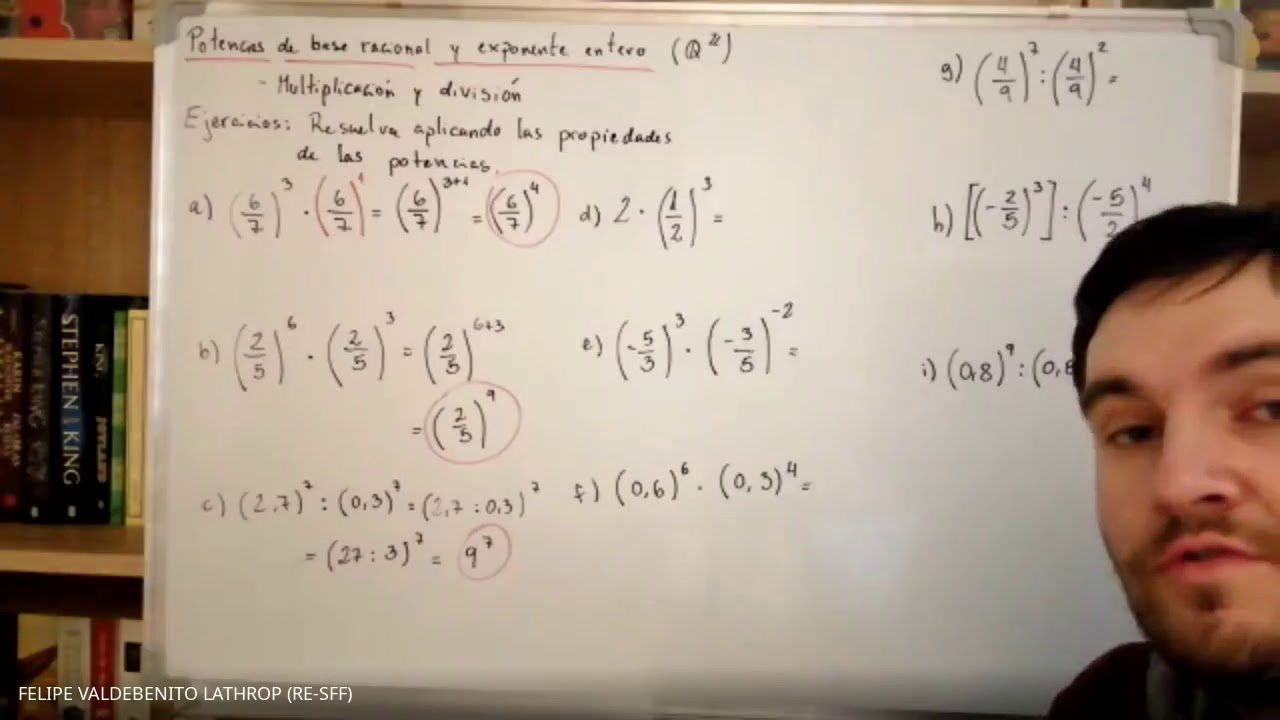 Potencias de base racional y exponente entero (ℚ^ℤ)
- Multiplicación y división
Ejercicios: Resuelva aplicando las propiedades
de las potencias.
a) (6/7)^3 · (6/7)^1 = (6/7)^(3+1) = (6/7)^4
b) (2/5)^6 · (2/5)^3 = (2/5)^(6+3)
= (2/5)^9
c) (2,7)^7 : (0,3)^7 = (2,7 : 0,3)^7
= (27 : 3)^7 = 9^7
d) 2 · (1/2)^3 =
e) (-5/3)^3 · (-3/5)^-2 =
f) (0,6)^6 · (0,3)^4 =
g) (4/9)^7 : (4/9)^2 =
h) [(-2/5)^3] : (-5/2)^4
i) (0,8)^9 : (0,8
STEPHEN KING
KING
FELIPE VALDEBENITO LATHROP (RE-SFF)